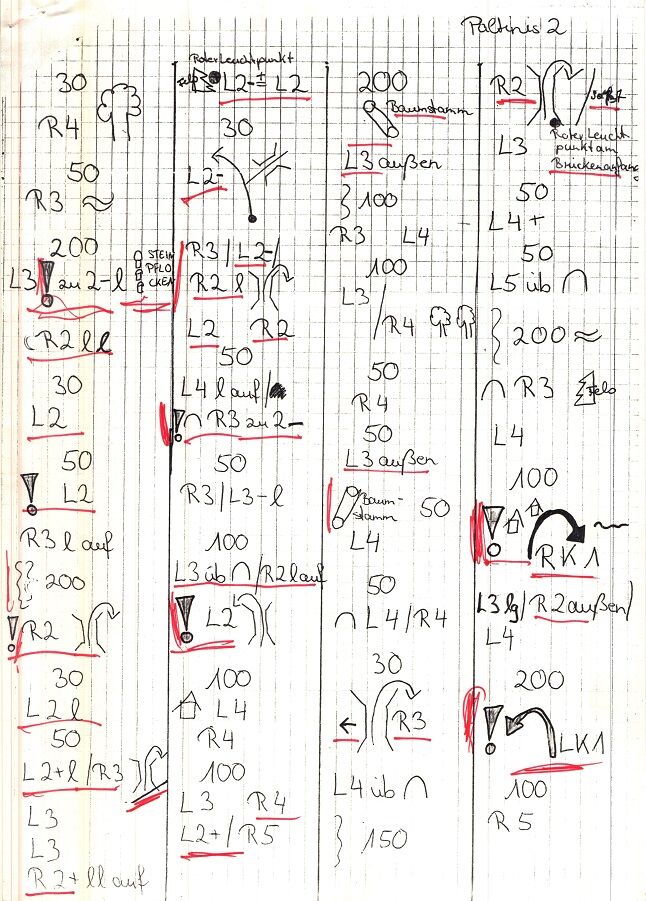 Paltinis 2
30
R4
50
R3
200
L3 ! zu 2-l STEIN
PFLO
CKEN
R2 ll
30
L2
50
! L2
R3 l auf
200
! R2
30
L2 l
50
L2+l/R3
L3
L3
R2+ ll auf
Roter Leuchtpunkt
L2- L2
30
L2-
R3/L2-/
R2 l
L2 R2
50
L4 l auf/
! R3 zu 2-
50
R3/L3-l
100
L3 üb ∩/R2 l auf
! L2
100
L4
R4
100
L3 R4
L2+/R5
200
Baumstamm
L3 außen
100
R3 L4
100
L3
/R4
50
R4
50
L3 außen
Baum-
stamm 50
L4
50
∩ L4/R4
30
← R3
L4 üb ∩
150
R2
Roter Leucht
punkt am
Brückenanfang
L3
50
L4+
50
L5 üb ∩
200 ≈
∩ R3 Fels
L4
100
! RK1
L3 lg/R2 außen/
L4
200
! LK1
100
R5